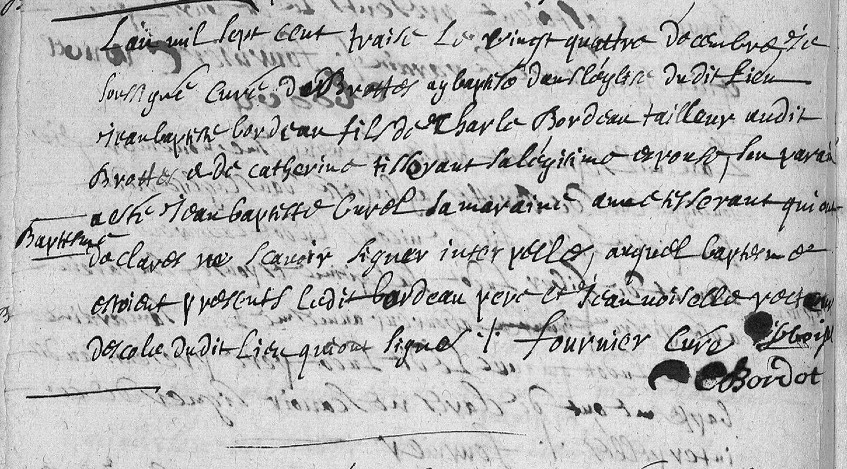 L'an mil sept cent traise le vingt quattre decembre Je
soussigné Curé de Brottes ay baptisé dans léglise dudit Lieu
Jean baptiste bordeau fils de Charle Bordeau tailleur audit
Brottes et de catherine tisserant sa légitime espouse, son parain
a esté Jean baptiste Curel sa maraine anne tisserant qui ont
Baptesme
declarés ne scavoir signer interpellés, auquel baptesme
estoient presents ledit bordeau pere et Jean noiselle recteur
descole dudit Lieu qui ont signés ./. fournier Curé
CBordot